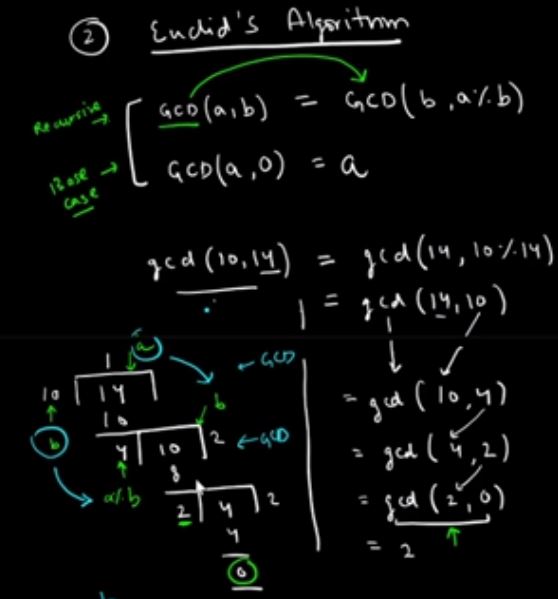 2 Euclid's Algorithm
Recursive → GCD(a,b) = GCD(b, a%b)
Base case → GCD(a,0) = a
gcd(10,14) = gcd(14, 10%14)
= gcd(14,10)
= gcd(10,4)
= gcd(4,2)
= gcd(2,0)
= 2
1 a
10 14 ← GCD
10 b
b 4 10 2 ← GCD
a%b 8
2 4 2
4
0